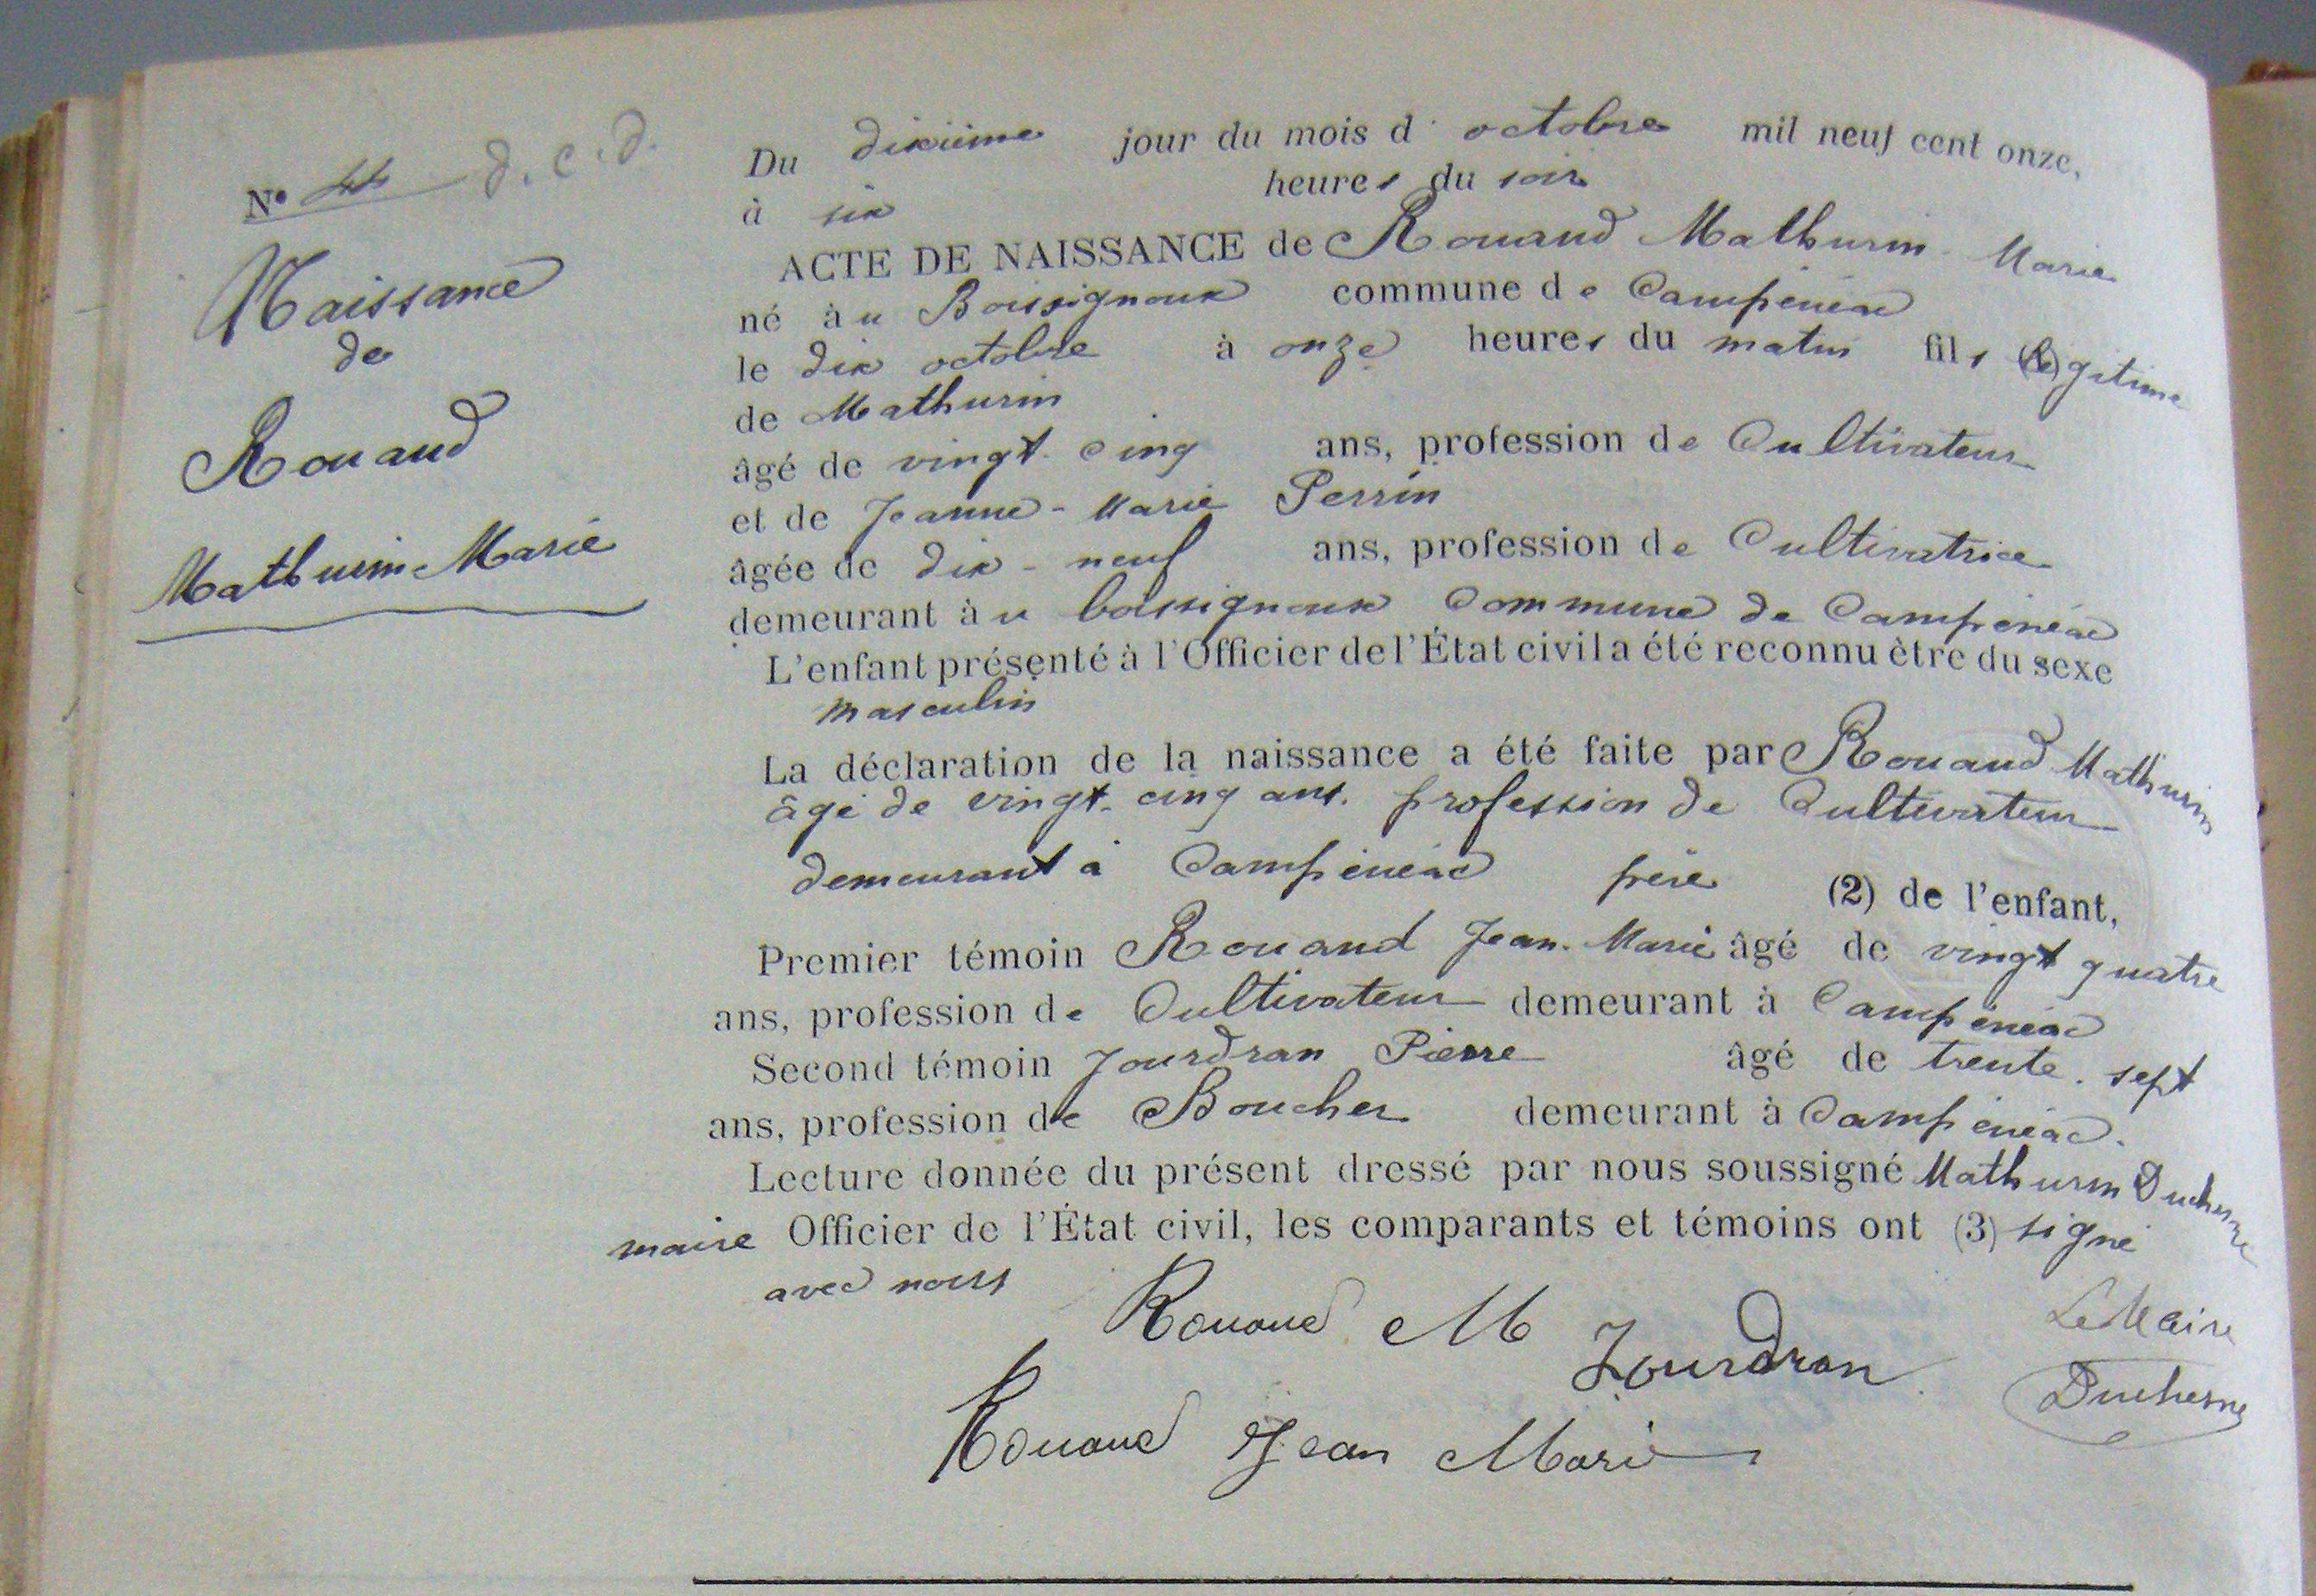 N° 44 d. c. d.
Naissance
de
Rouaud
Mathurin Marie
Du dixième jour du mois d'octobre mil neuf cent onze,
à six heures du soir
ACTE DE NAISSANCE de Rouaud Mathurin Marie
né àu Boissignoux commune de Campénéac
le dix octobre à onze heures du matin fils légitime
de Mathurin
âgé de vingt-cinq ans, profession de Cultivateur
et de Jeanne-Marie Perrin
âgée de dix-neuf ans, profession de Cultivatrice
demeurant àu boissignoux Commune de Campénéac
L'enfant présenté à l'Officier de l'État civil a été reconnu être du sexe
masculin
La déclaration de la naissance a été faite par Rouaud Mathurin
âgé de vingt-cinq ans. profession de Cultivateur
demeurant à Campénéac père (2) de l'enfant,
Premier témoin Rouaud Jean-Marie âgé de vingt quatre
ans, profession de Cultivateur demeurant à Campénéac
Second témoin Jourdran Pierre âgé de trente-sept
ans, profession de Boucher demeurant à Campénéac.
Lecture donnée du présent dressé par nous soussigné Mathurin Duchesne
maire Officier de l'État civil, les comparants et témoins ont (3) signé
avec nous
Rouaud M
Jourdran
Le Maire
Duchesne
Rouaud Jean Marie